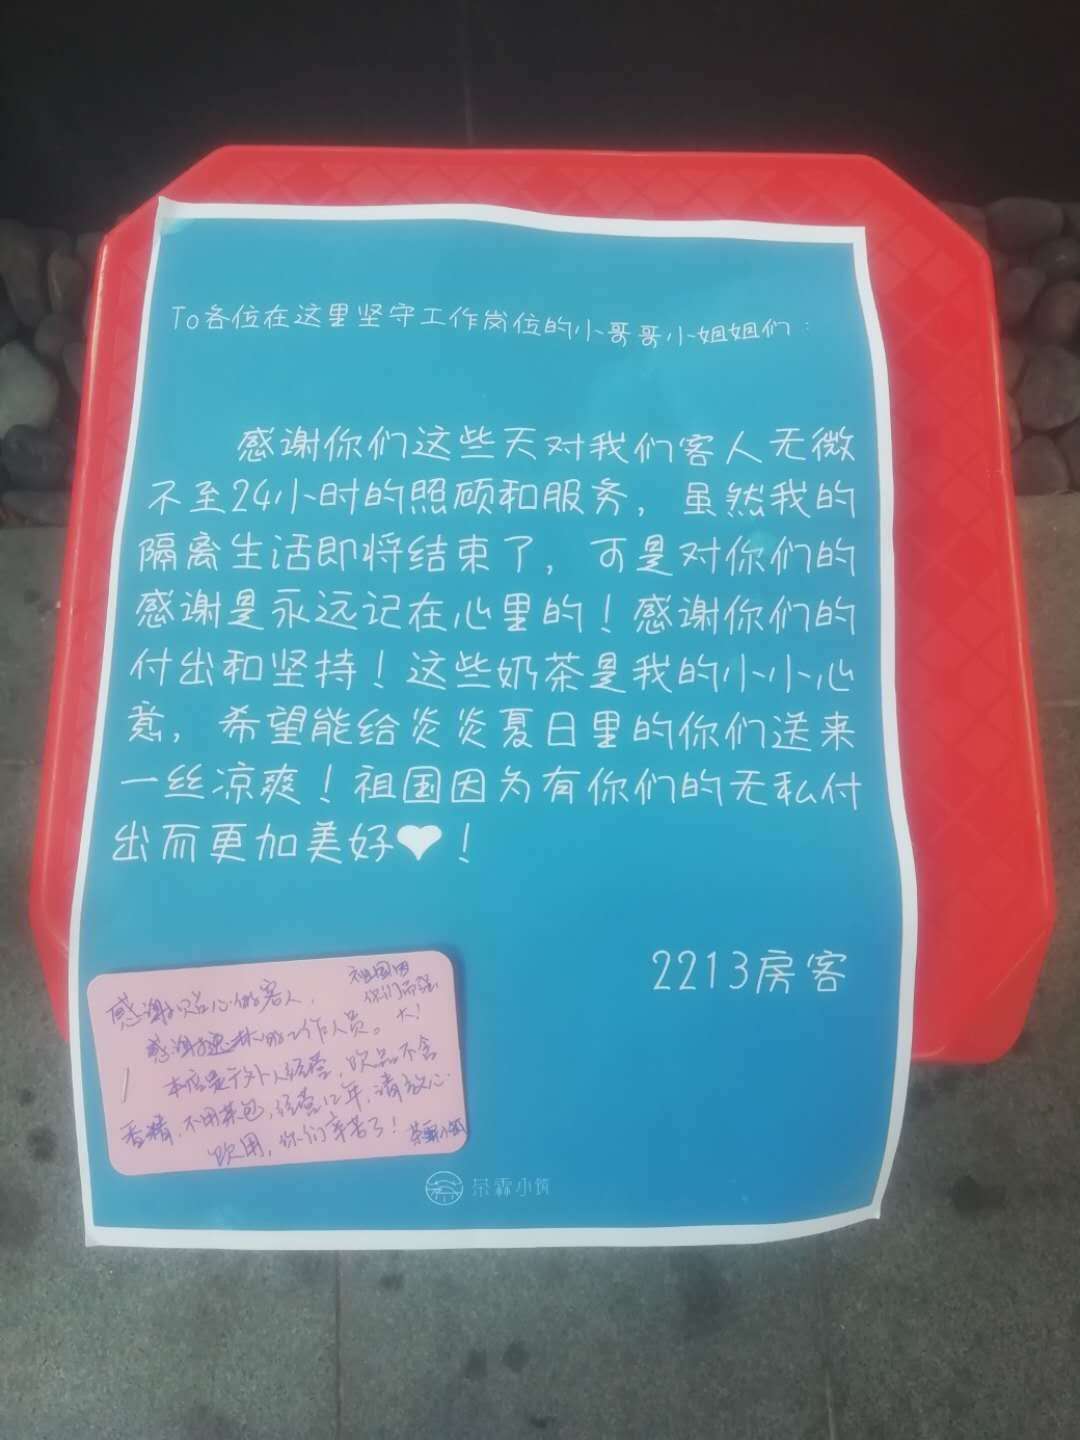 To各位在这里坚守工作岗位的小哥哥小姐姐们：
感谢你们这些天对我们客人无微
不至24小时的照顾和服务，虽然我的
隔离生活即将结束了，可是对你们的
感谢是永远记在心里的！感谢你们的
付出和坚持！这些奶茶是我的小小心
意，希望能给炎炎夏日里的你们送来
一丝凉爽！祖国因为有你们的无私付
出而更加美好❤！
2213房客
感谢贴心的客人，
祖国因
你们而强
大！
感谢 的工作人员。
本店 经营，饮品不含
香精，不用茶包，经营12年，请放心
饮用，你们辛苦了！茶霖小筑
茶霖小筑